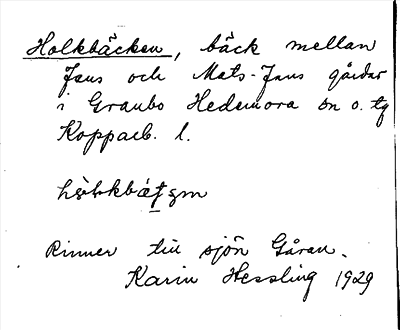 Holkbäcken, bäck mellan
Jans och Mats-Jans gårdar
i Graubo Hedemora sn o. tg
Kopparb. l.
Rinner till sjön Gåran.
Karin Hessling 1929